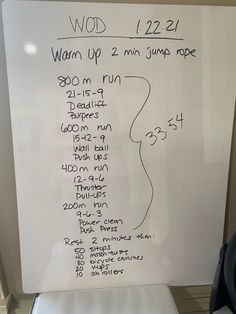 WOD 1.22.21
Warm up 2 min jump rope
800 m run
21-15-9
Deadlift
Burpees
600m run
15-12-9
Wall ball
Push ups
400m run
12-9-6
Thruster
Pull-ups
200m run
9-6-3
Power clean
Push Press
33:54
Rest 2 minutes then:
50 situps
40
30 bicycle crunches
20 V-ups
10 ab rollers